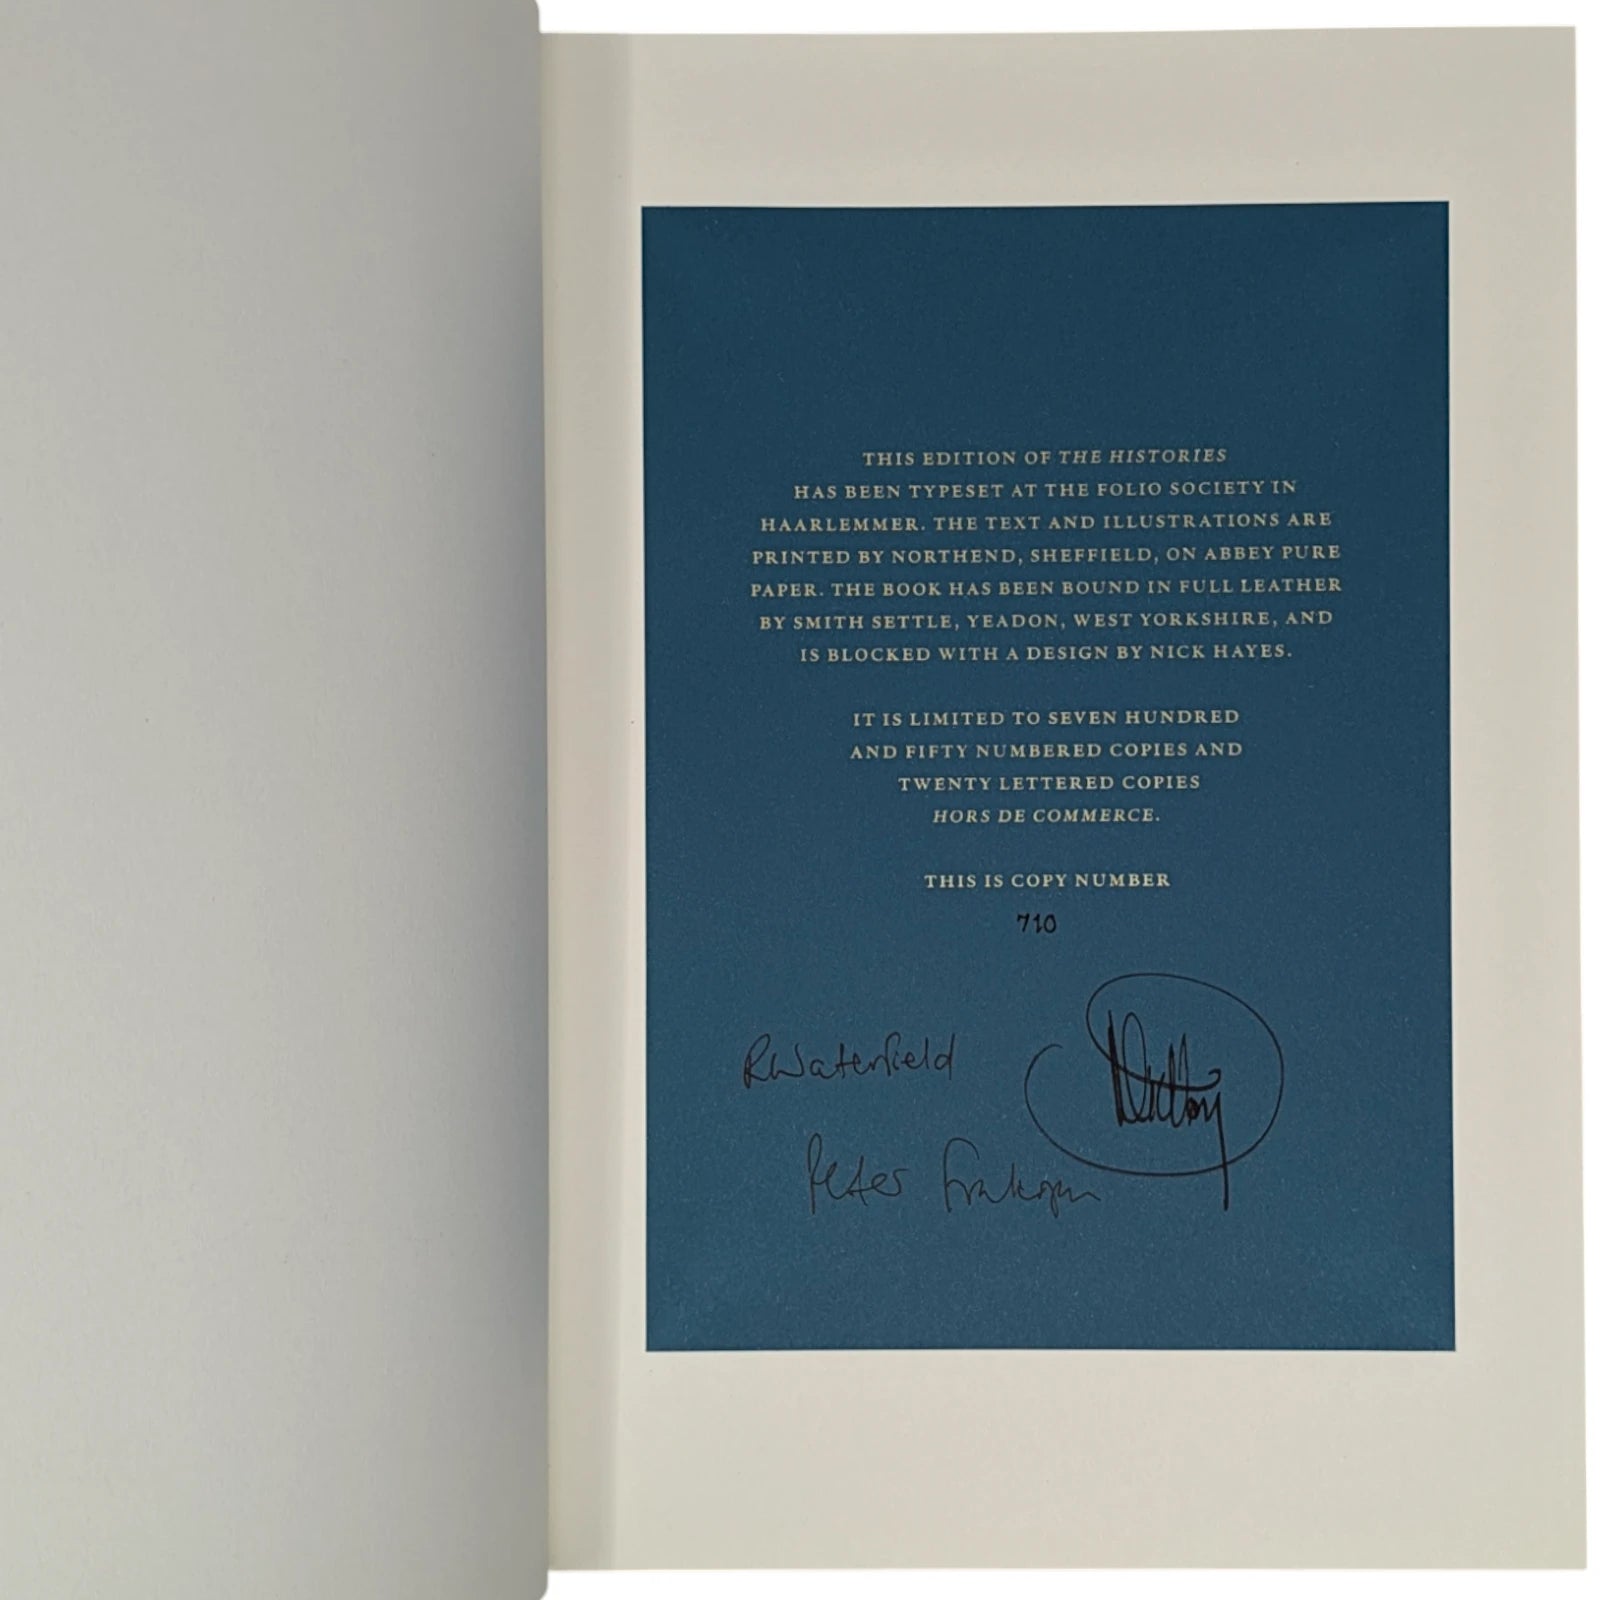 THIS EDITION OF THE HISTORIES
HAS BEEN TYPESET AT THE FOLIO SOCIETY IN
HAARLEMMER. THE TEXT AND ILLUSTRATIONS ARE
PRINTED BY NORTHEND, SHEFFIELD, ON ABBEY PURE
PAPER. THE BOOK HAS BEEN BOUND IN FULL LEATHER
BY SMITH SETTLE, YEADON, WEST YORKSHIRE, AND
IS BLOCKED WITH A DESIGN BY NICK HAYES.
IT IS LIMITED TO SEVEN HUNDRED
AND FIFTY NUMBERED COPIES AND
TWENTY LETTERED COPIES
HORS DE COMMERCE.
THIS IS COPY NUMBER
710
RWaterfield
Peter Frankopan